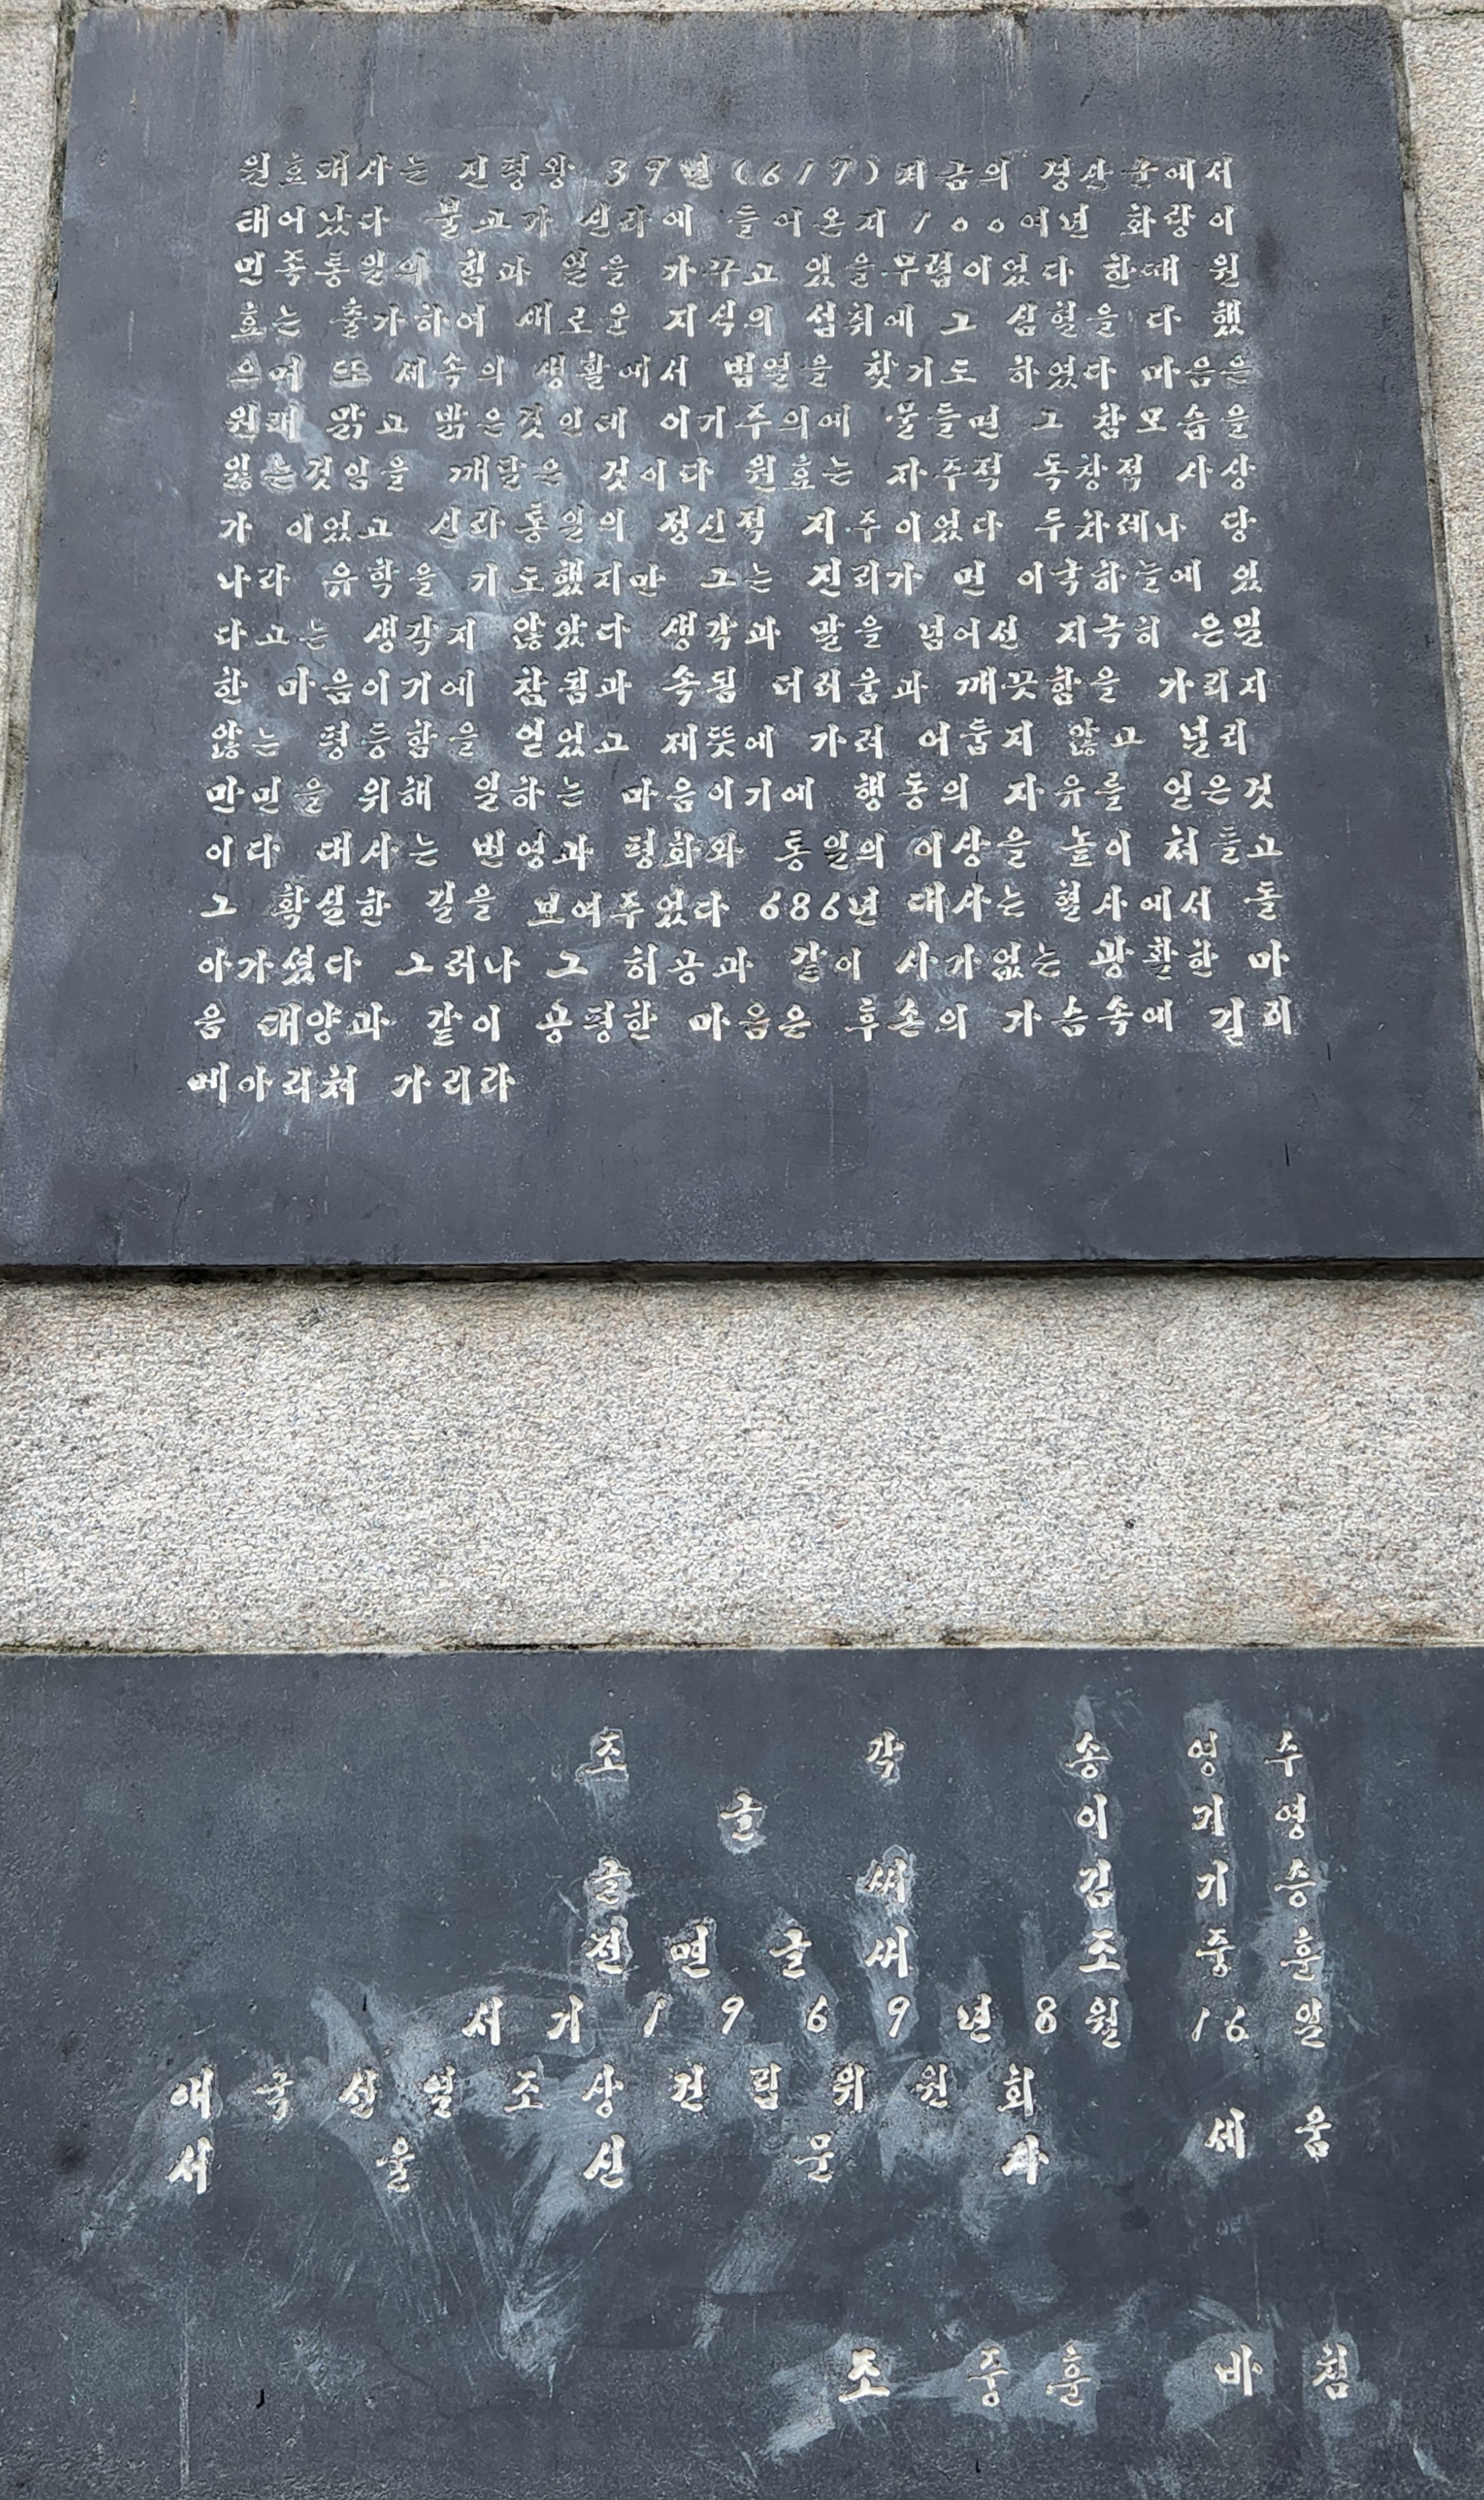 원효대사는 진평왕 39년(617) 지금의 경산군에서
태어났다 불교가 신라에 들어온지 100여년 화랑이
민족통일의 힘과 얼을 가꾸고 있을무렵이었다 한때 원
효는 출가하여 새로운 지식의 섭취에 그 심혈을 다 했
으며 또 세속의 생활에서 법열을 찾기도 하였다 마음은
원래 맑고 밝은것인데 이기주의에 물들면 그 참모습을
잃는것임을 깨달은 것이다 원효는 자주적 독창적 사상
가 이었고 신라통일의 정신적 지주이었다 두차례나 당
나라 유학을 기도했지만 그는 진리가 먼 이국하늘에 있
다고는 생각지 않았다 생각과 말을 넘어선 지극히 은밀
한 마음이기에 참됨과 속됨 더러움과 깨끗함을 가리지
않는 평등함을 얻었고 제뜻에 가려 어둡지 않고 널리
만민을 위해 일하는 마음이기에 행동의 자유를 얻은것
이다 대사는 번영과 평화와 통일의 이상을 높이 쳐들고
그 확실한 길을 보여주었다 686년 대사는 혈사에서 돌
아가셨다 그러나 그 허공과 같이 사가없는 광활한 마
음 태양과 같이 공평한 마음은 후손의 가슴속에 길히
메아리쳐 가리라
조 각 송 영 수
글 이 기 영
글 씨 김 기 승
전 면 글 씨 조 중 훈
서 기 1 9 6 9 년 8 월 16 일
애 국 선 열 조 상 건 립 위 원 회
서 울 신 문 사 세 움
조 중 훈 바 침